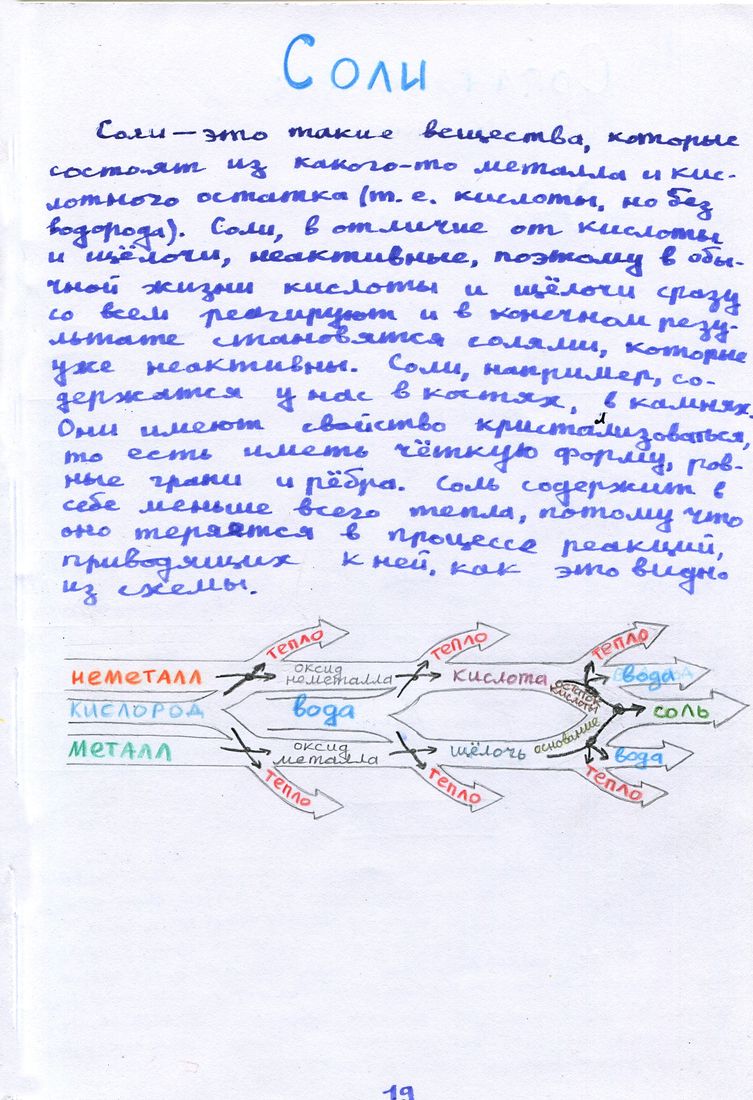 Соли
Соли — это такие вещества, которые
состоят из какого-то металла и кис-
лотного остатка (т. е. кислоты, но без
водорода). Соли, в отличие от кислоты
и щёлочи, неактивные, поэтому в обы-
чной жизни кислоты и щёлочи сразу
со всем реагируют и в конечном резу-
льтате становятся солями, которые
уже неактивны. Соли, например, со-
держатся у нас в костях, в камнях.
Они имеют свойство кристаллизоваться,
то есть иметь чёткую форму, ров-
ные грани и рёбра. Соль содержит в
себе меньше всего тепла, потому что
оно теряется в процессе реакций,
приводящих к ней, как это видно
из схемы.
тепло тепло тепло
неметалл оксид неметалла кислота остаток кислоты вода
кислород вода соль
металл оксид металла щёлочь основание вода
тепло тепло тепло
19